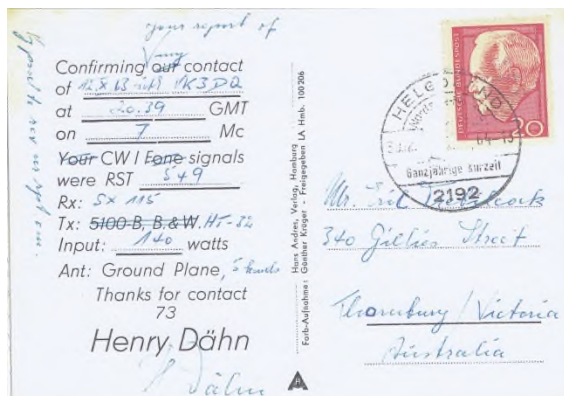 your report of
my
Confirming our contact
of 12.X 63 with VK3DQ
at 20.39 GMT
on 7 Mc
Your CW I Fone signals
were RST 549
Rx: SX 115
Tx: 5100-B, B.&W, HT-32
Input: 140 watts
Ant: Ground Plane,
Thanks for contact
73
Henry Dähn
H Dähn
Hans Andres, Verlag, Hamburg
Farb-Aufnahme: Günther Krüger - Freigegeben LA Hmb. 100 206
DEUTSCHE BUNDESPOST
20
HELGOLAND
Ganzjährige Kurzeit
2192
Mr. Eric
340 Gillies Street
Thornbury / Victoria
Australia